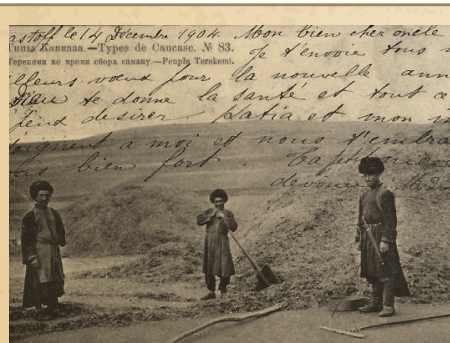 stoff le 14 Décembre 1904. Mon bien cher oncle
Типы Кавказа.—Types de Caucase. № 83.
Je t'envoie tous
Терекемы во время сбора саману.—Peuple Terekemi.
illeurs vœux pour la nouvelle ann
Dieu te donne la santé et tout ce
désirer. Katia et mon
joignent à moi et nous t'embra
bien fort. Ta